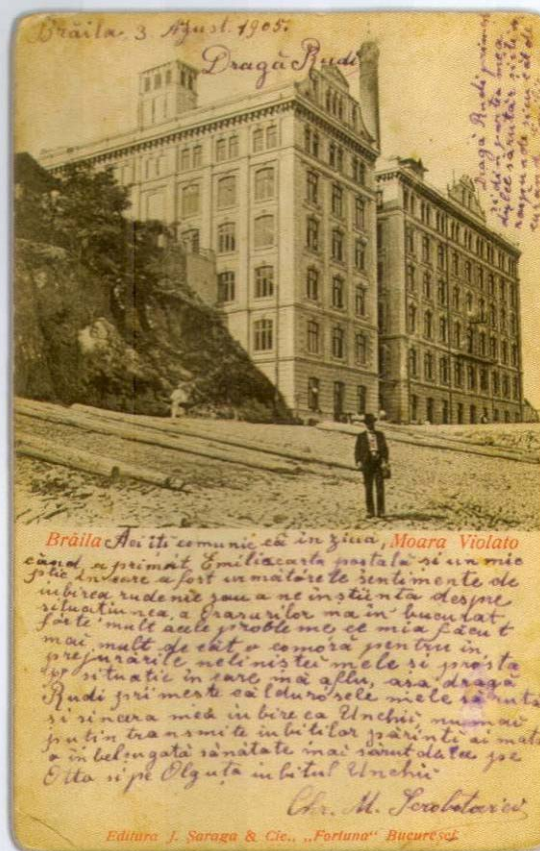 Brăila 3 August. 1905.
Dragă Rudi
Dragă Rudi primește
din partea mea
dulce sărutări și
Brăila
Moara Violato
Aci iti comunic că in ziua,
când a primit Emilia carta postală si un mic
plic in care a fost următorele sentimente de
iubirea rudenie sau a ne instiinta despre
situatiunea, a
mă in bucurat
forte mult acele probleme ce mia făcut
mai mult de cât o comora pentru in
prejurările nelinistei mele si prosta
situatie in care mă aflu, asa dragă
Rudi primeste căldurósele mele sărutari
si sincera mea iubire ca Unchiu, nu mai
putin transmite iubitilor părinti ai mata
o inbelsugată sănătate inai sărut dulce pe
Otto si pe Olguta iubitul Unchiu
Chr. M.
Editura J. Șaraga & Cie., „Fortuna“ București.